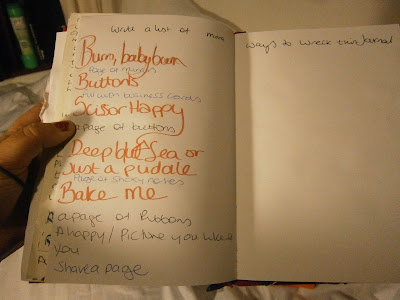 Write a list of more ways to wreck this journal
Burn, baby burn
Page of mirrors
Buttons
Fill with business cards
Scisor Happy
a page of buttons
Deep blue Sea or
Just a puddle
Page of sticky notes
Bake me
a page of Ribbons
A happy / Picture you
you
Share a page